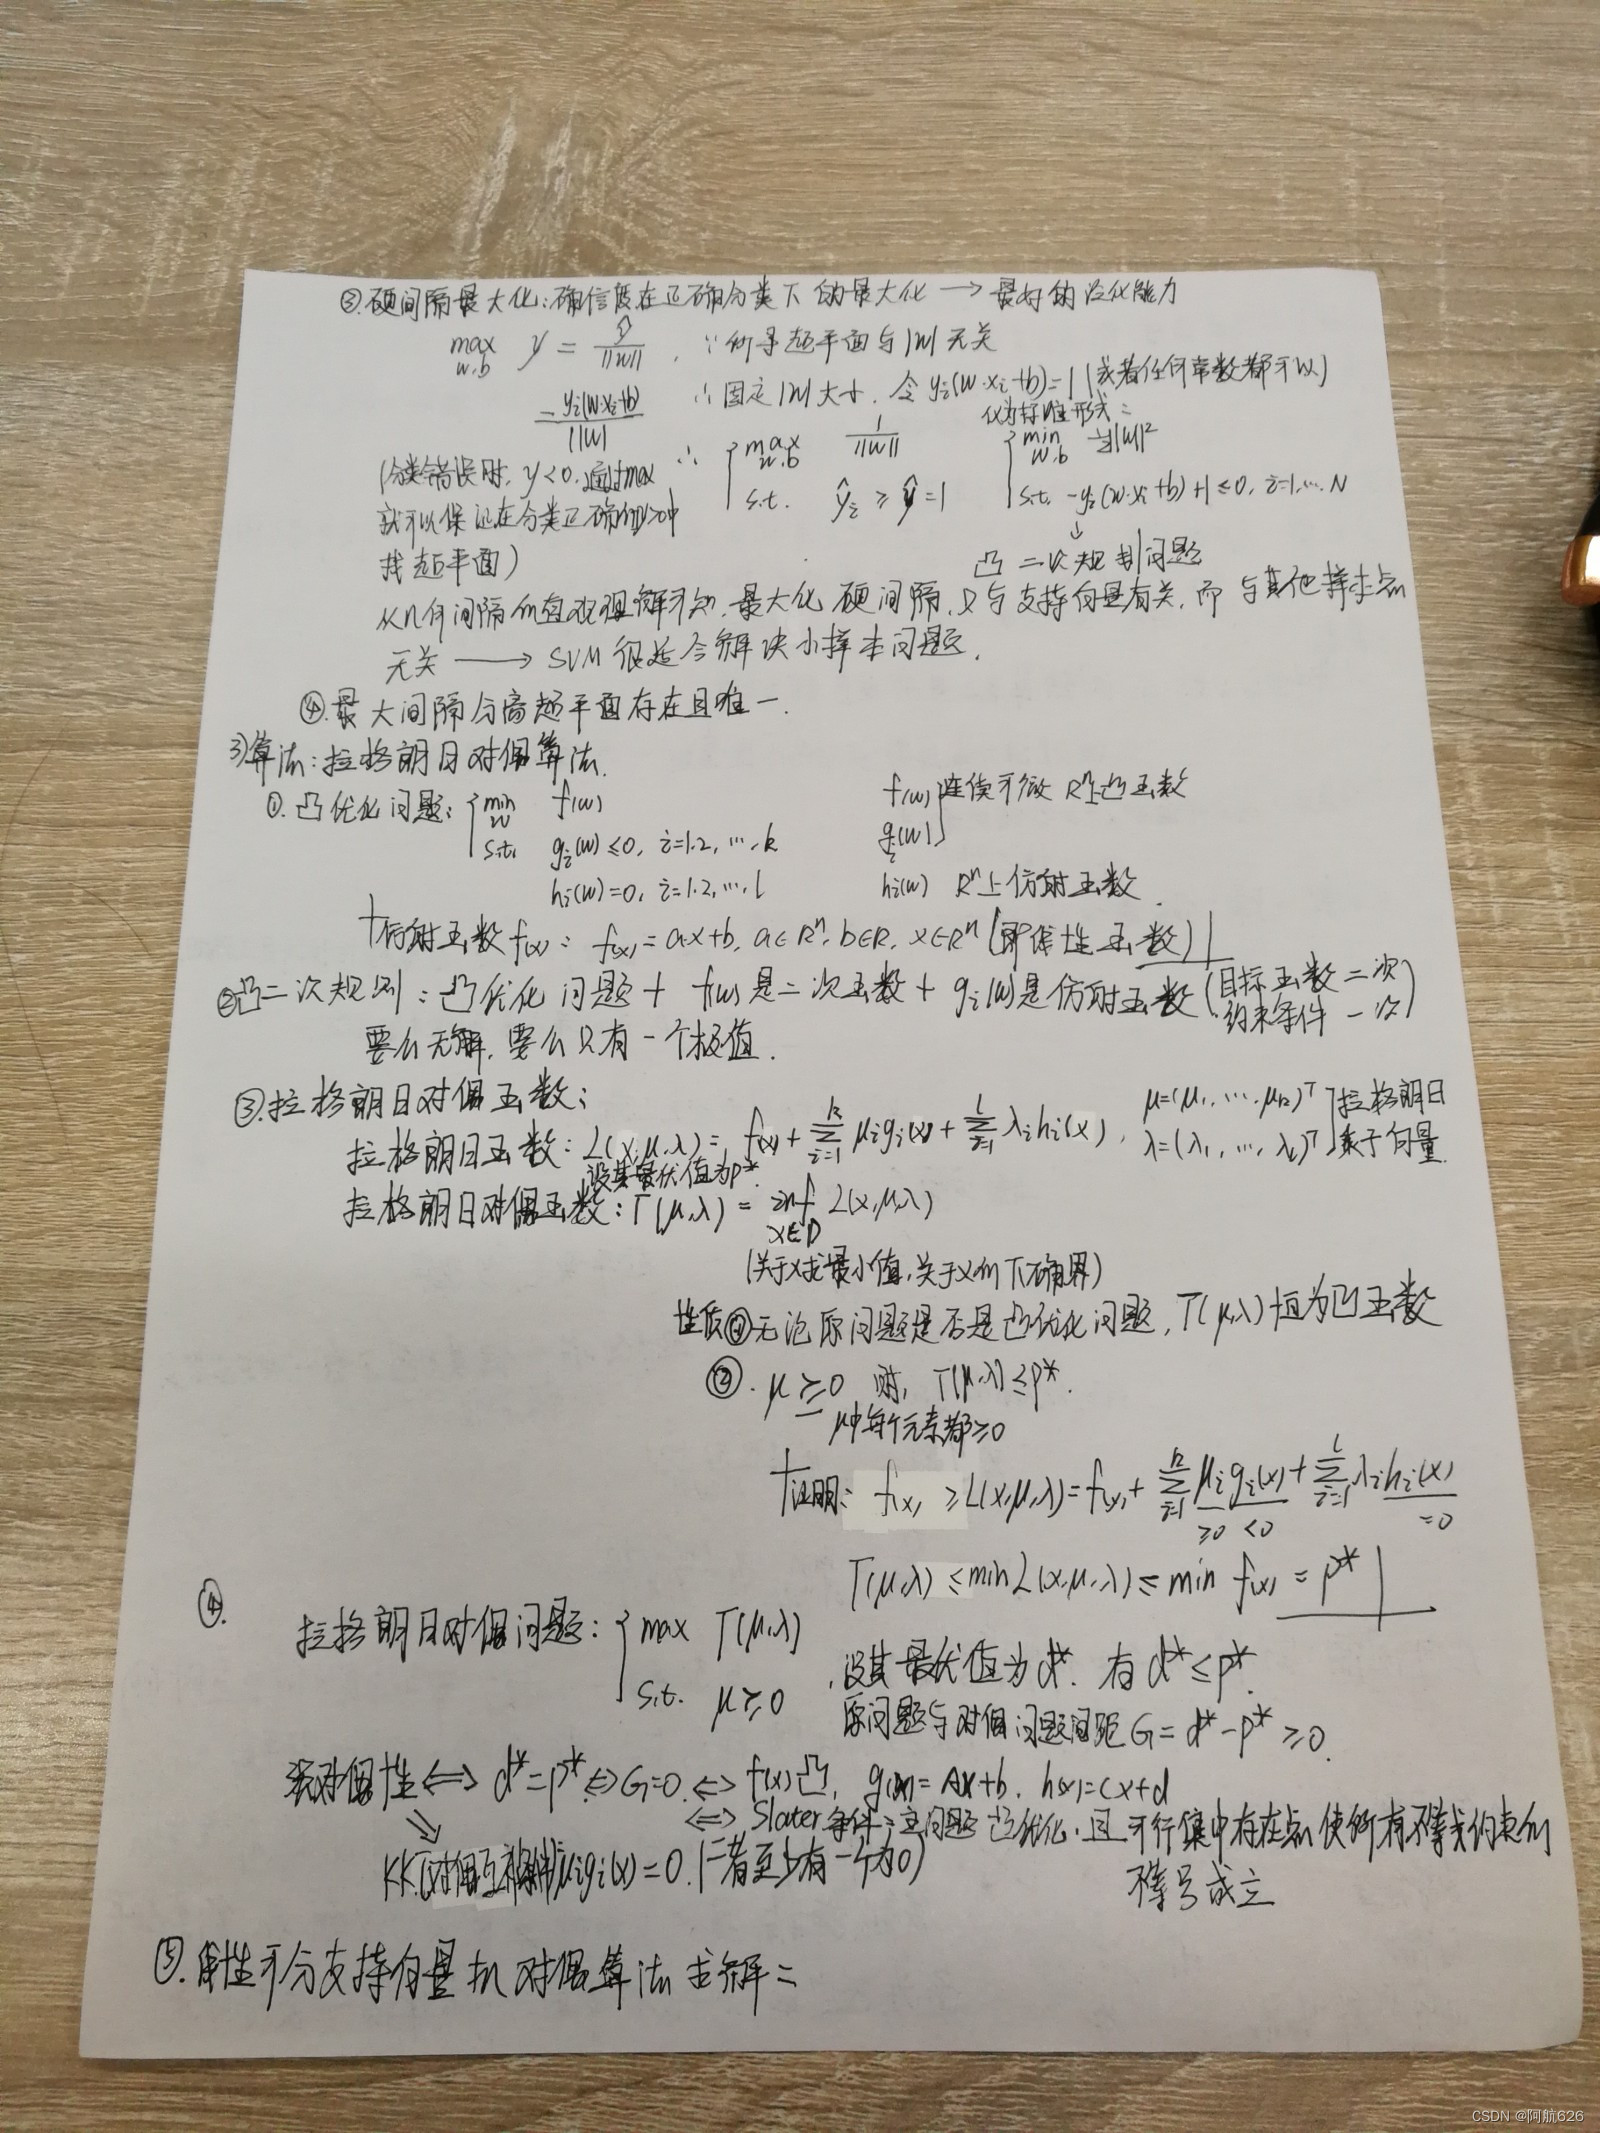 ③.硬间隔最大化:确信度在正确分类下的最大化 → 最好的泛化能力
max w,b γ = γ̂/||w|| , ∵所寻超平面与|w|无关
= yᵢ(w·xᵢ+b)/||w|| ∴固定|w|大小, 令yᵢ(w·xᵢ+b)=1 (或者任何常数都可以)
化为标准形式:
∴ { max w,b 1/||w|| { min w,b ½||w||²
(分类错误时, γ<0, 通过max s.t. γ̂ᵢ ≥ γ̂ =1 s.t. -yᵢ(w·xᵢ+b)+1≤0, i=1,…,N
就可以保证在分类正确的γ中 ↓
找超平面) 凸二次规划问题
从几何间隔的直观理解可知,最大化硬间隔,只与支持向量有关,而与其他样本点
无关 → SVM很适合解决小样本问题.
④.最大间隔分离超平面存在且唯一.
3)算法:拉格朗日对偶算法.
①.凸优化问题: { min w f(w) f(w) 连续可微 Rⁿ上凸函数
s.t. gᵢ(w)≤0, i=1.2,…,k gᵢ(w)
hᵢ(w)=0, i=1.2,…,l hᵢ(w) Rⁿ上仿射函数
仿射函数f(x): f(x)=a·x+b, a∈Rⁿ, b∈R, x∈Rⁿ (即线性函数)
②凸二次规则:凸优化问题 + f(w)是二次函数 + gᵢ(w)是仿射函数 (目标函数二次
约束条件一次)
要么无解, 要么只有一个极值.
③.拉格朗日对偶函数:
拉格朗日函数: L(x,μ,λ)= f(x)+ Σᵢ₌₁ᵏ μᵢgᵢ(x)+ Σᵢ₌₁ˡ λᵢhᵢ(x), μ=(μ₁,…,μₖ)ᵀ 拉格朗日
λ=(λ₁,…,λₗ)ᵀ 乘子向量
设其最优值为p*
拉格朗日对偶函数: Γ(μ,λ) = inf x∈D L(x,μ,λ)
(关于x求最小值,关于x的下确界)
性质①无论原问题是否是凸优化问题, Γ(μ,λ)恒为凹函数
②. μ≥0 时, Γ(μ,λ)≤p*.
μ中每个元素都≥0
证明: f(x) ≥L(x,μ,λ)=f(x)+ Σᵢ₌₁ᵏ μᵢgᵢ(x)+ Σᵢ₌₁ˡ λᵢhᵢ(x)
≥0 <0 =0
Γ(μ,λ) ≤min L(x,μ,λ)≤ min f(x) = p*
④.
拉格朗日对偶问题: { max Γ(μ,λ)
s.t. μ≥0 ,设其最优值为d*. 有d*≤p*.
原问题与对偶问题间距G= d*-p* ≥0.
强对偶性 ⟺ d*=p* ⟺ G=0 ⟺ f(x)凸, g(x)=Ax+b, h(x)=Cx+d
⟺ Slater条件:主问题凸优化,且可行集中存在点使所有不等式约束的
不等号成立
⇓ KK(对偶互补条件) μᵢgᵢ(x)=0. (二者至少有一个为0)
⑤.线性可分支持向量机对偶算法求解:
CSDN @阿航626